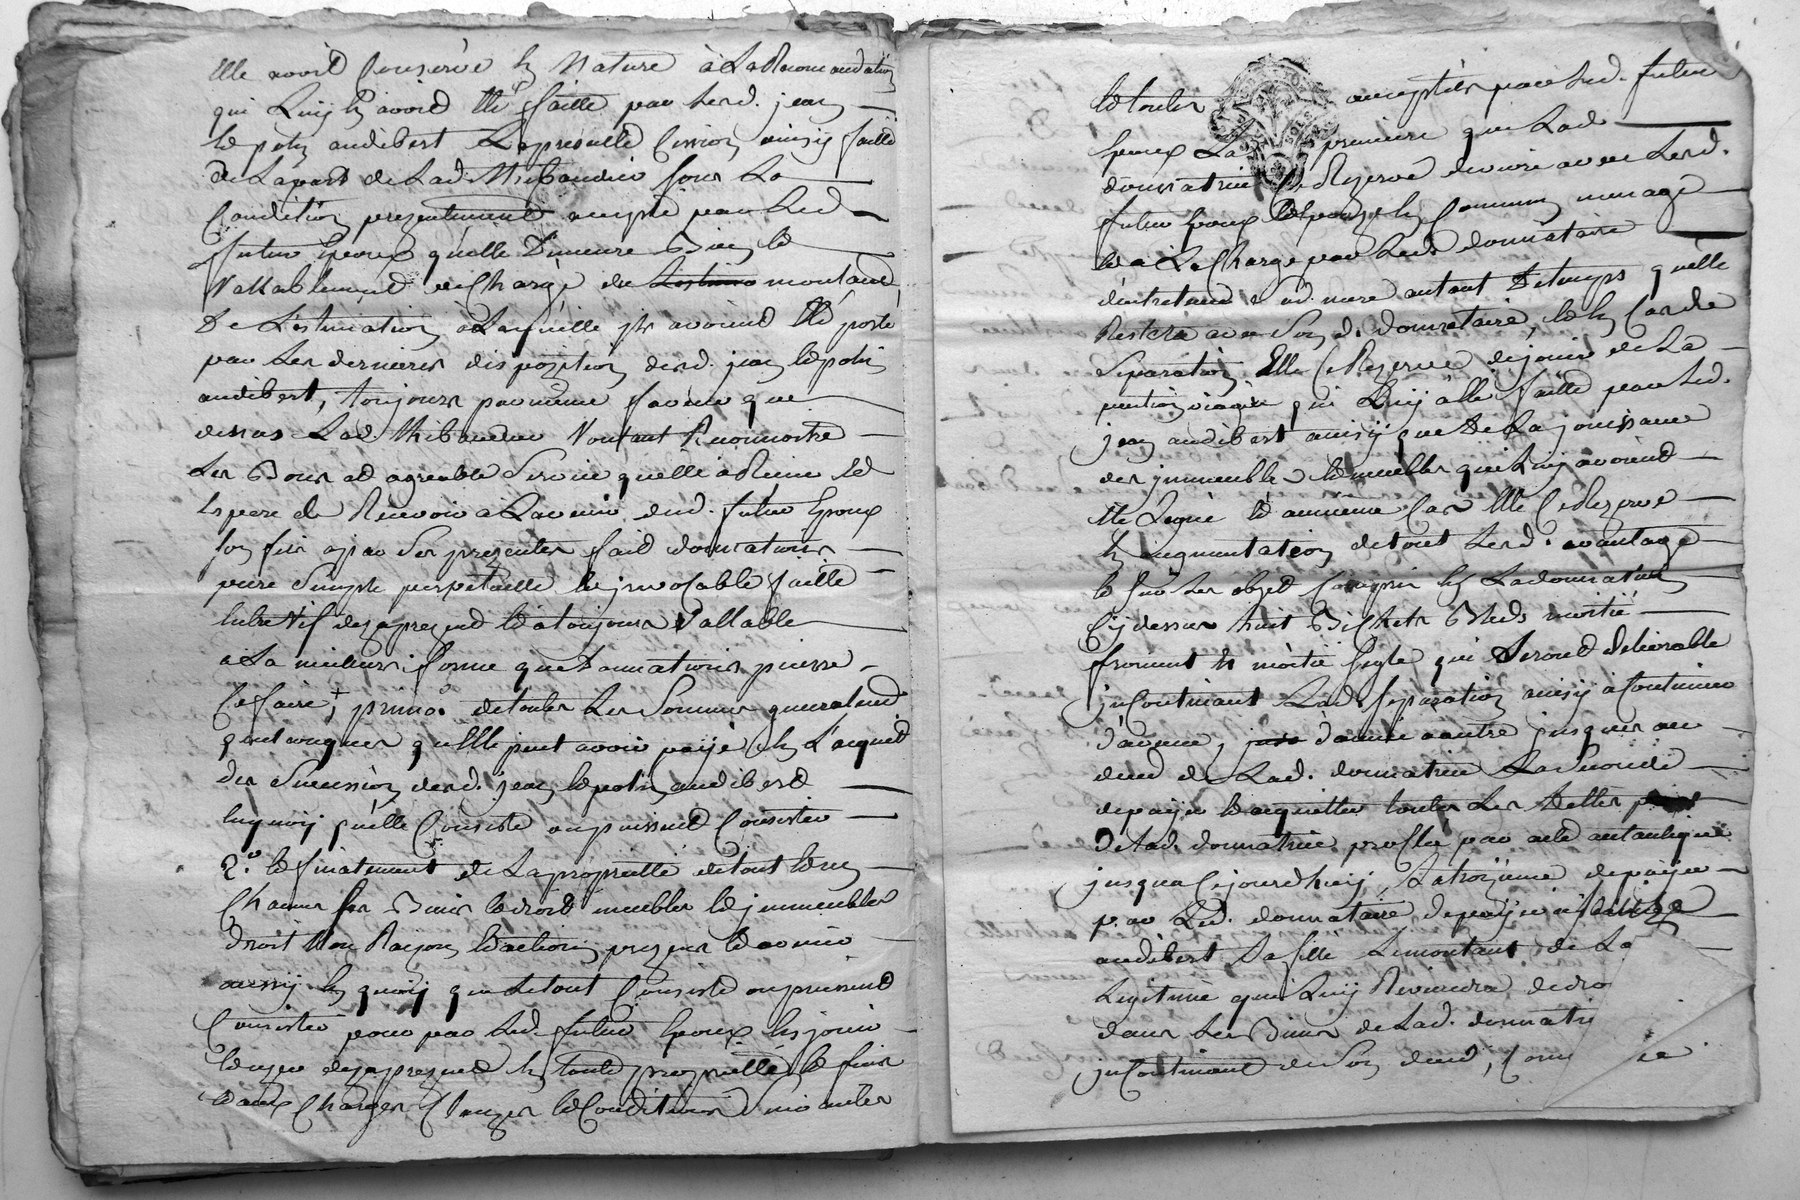 Elle avoit Conservé En Nature à La Recomandation
qui Luy En avoit Eté faitte par Led. jean
hipolite audibert La presente Cession ainsy faitte
De La part de Lad. Thibaudier sous La
Condition presentement acceptée par Led
futur Epoux quelle Demeure Bien et
Vallablement dechargé du montant
De L'estimation à Laquelle ils avoint Eté porté
par Les dernieres disposition dud. jean
audibert, toujours par meme faveur que
dessus Lad. Thibaudier Voulant Reconnoitre
Les Bons et agreable Service quelle à Reçue et
Espere de Recevoir à Lavenir dud. futur Epoux
son fils a par Ses presentes fait donnation
pure Simple perpetuelle Et jrrevocable faitte
Entre Vif des a present Et à toujours Vallable
à La meilleure forme que donnations puisse
Ce faire, primo. de toutes Les Sommes
quelle peut avoir payé En L'acquit
des Succession dud. jean audibert
En quoy quelle Consiste ou puissent Consister
2.° Et finalement de La proprietté de tout Et un
Chacun Ses Biens Et droit meubles Et jmmeubles
droit Nom Raizon Et action presens Et avenir
aussy En quoy que Le tout Consiste ou puissent
Consister pour par Led. futur Epoux En jouir
Et uzer des a present En toute proprietté Et fruit
Et aux Charges Clauzes Et Condition Suivantes
Et toutes acceptées par Led. futur
Epoux La premiere que Lad
donnatrice Ce Rezerve de vivre avec Led.
futur Epoux Et Epouze En Commun menage
Et à La Charge par Led. donnataire
dentretenir Sad. mere autant De temps quelle
Restera avec Son d. donnataire, Et En Cas de
Separation Elle Ce Rezerve de jouir de La
pention viagere qui Luy a Eté faitte par Led.
jean audibert ainsy que De La jouissance
des jmmeubles Et meubles qui Luy avoient
Eté Legué Et à meme Car Elle Ce Rezerve
En augmentation de tout Lesd. avantage
Et sur Les objet Compris En La donnation
Cy dessus huit Bichets Bleds moitié
froment Et moitié Segle qui Seront delivrable
jncontinant Lad. Separation ainsy à Continuer
d'avance, d'année a autre jusques au
deced de Lad. donnatrice La Seconde
de payer Et acquitter toutes Les dettes
De Lad. donnatrice par acte autantique
jusqua Cejourdhuy, La troizieme de payer
par Led. donnataire, de payer a
audibert Sa fille Le montant de La
Legitime qui Luy Reviendra de dro
dans Les Biens de Lad. donnatri
jncontinant de Son deced,